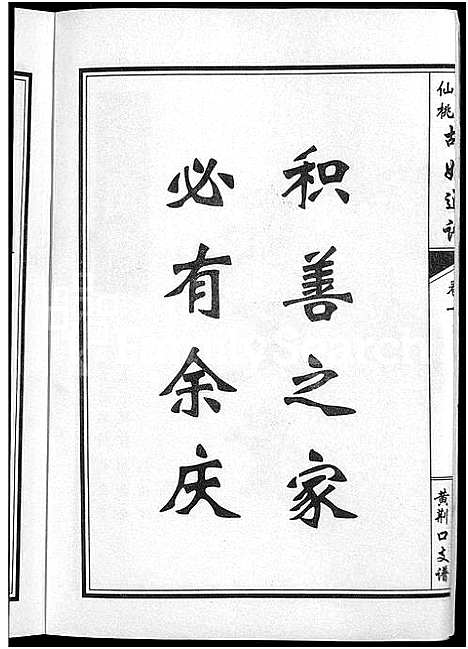 积善之家
必有余庆
仙桃古姓通谱
卷一
黄荆口支谱